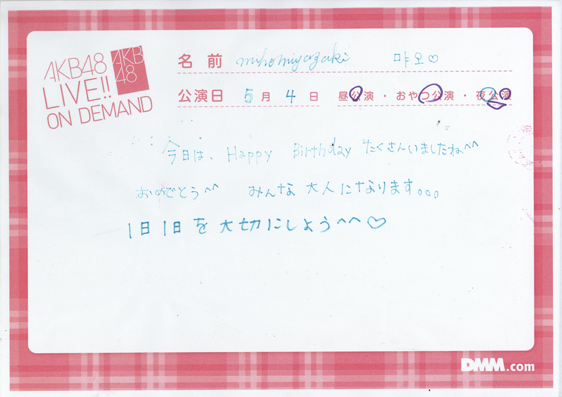 AKB48
LIVE!!
ON DEMAND
AKB
48
名前 mihomiyazaki 먀오♡
公演日 5月4日 昼公演・おやつ公演・夜公演
今日は、Happy Birthday たくさんいましたね^^
おめでとう^^ みんな大人になります。。。
1日1日を大切にしよう^^♡
DMM.com